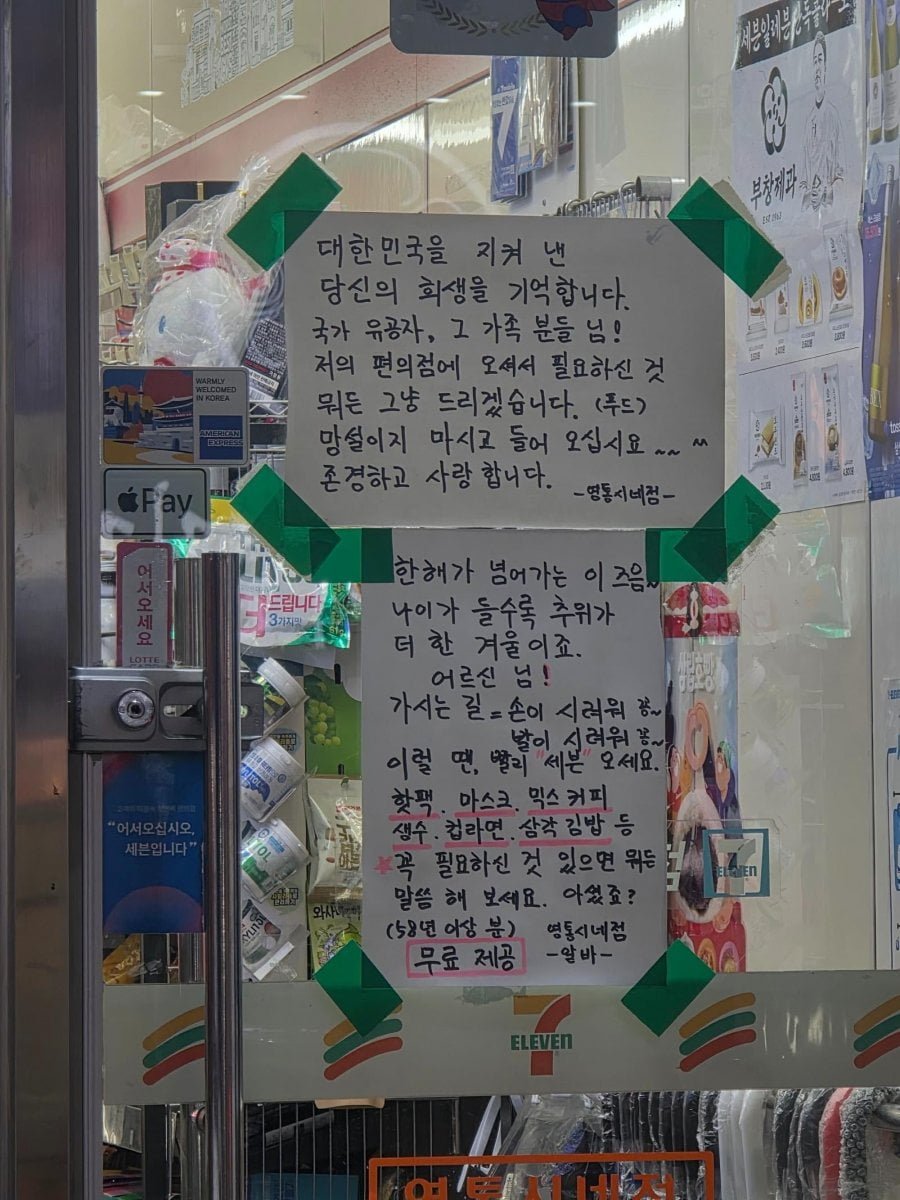 세븐일레븐
부창제과
EST 1963
대한민국을 지켜 낸
당신의 희생을 기억합니다.
국가 유공자, 그 가족 분들 님!
저의 편의점에 오셔서 필요하신 것
뭐든 그냥 드리겠습니다. (푸드)
망설이지 마시고 들어 오십시요 ~~ ^^
존경하고 사랑 합니다.
-영통시네점-
WARMLY
WELCOMED
IN KOREA
AMERICAN
EXPRESS
Pay
어서오세요
LOTTE
드립니다
3가지맛
한해가 넘어가는 이 즈음~
나이가 들수록 추위가
더 한 겨울이죠.
어르신 님!
가시는 길 = 손이 시려워 꽁~
발이 시려워 꽁~
이럴 땐, 빨리 "세븐" 오세요.
핫팩. 마스크. 믹스커피
생수. 컵라면. 삼각김밥 등
꼭 필요하신 것 있으면 뭐든
말씀 해 보세요. 아셨죠?
(58년 이상 분) 영통시네점
무료 제공 -알바-
"어서오십시오,
세븐입니다"
7
ELEVEN
7
ELEVEN
영통시네점